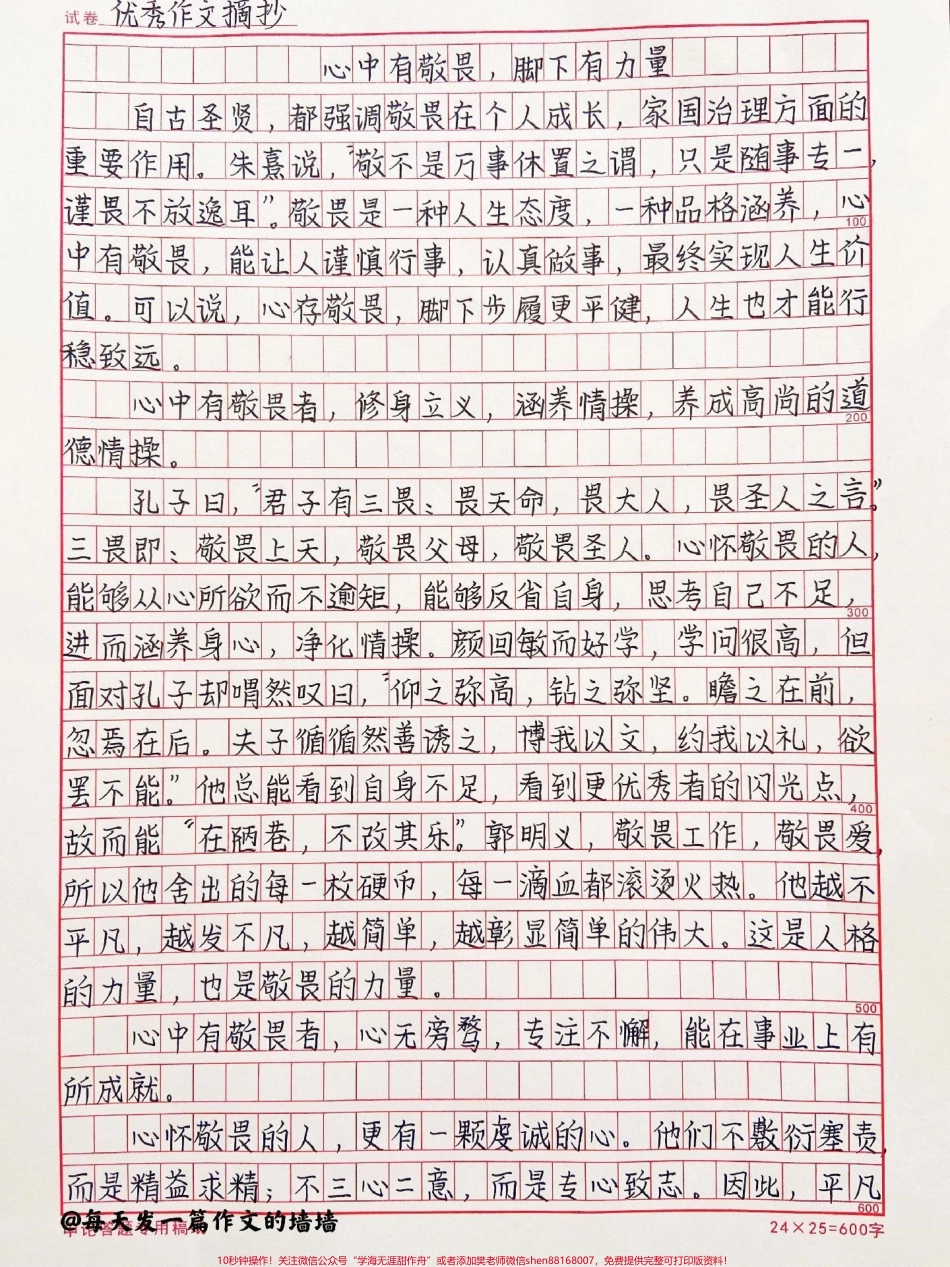 试卷 优秀作文摘抄
心中有敬畏，脚下有力量
自古圣贤，都强调敬畏在个人成长，家国治理方面的
重要作用。朱熹说，“敬不是万事休置之谓，只是随事专一，
谨畏不放逸耳”。敬畏是一种人生态度，一种品格涵养，心
100
中有敬畏，能让人谨慎行事，认真做事，最终实现人生价
值。可以说，心存敬畏，脚下步履更平健，人生也才能行
稳致远。
心中有敬畏者，修身立义，涵养情操，养成高尚的道
200
德情操。
孔子曰，“君子有三畏：畏天命，畏大人，畏圣人之言”。
三畏即：敬畏上天，敬畏父母，敬畏圣人。心怀敬畏的人，
能够从心所欲而不逾矩，能够反省自身，思考自己不足，
300
进而涵养身心，净化情操。颜回敏而好学，学问很高，但
面对孔子却喟然叹曰，“仰之弥高，钻之弥坚。瞻之在前，
忽焉在后。夫子循循然善诱之，博我以文，约我以礼，欲
罢不能。”他总能看到自身不足，看到更优秀者的闪光点，
400
故而能“在陋巷，不改其乐”。郭明义，敬畏工作，敬畏爱，
所以他舍出的每一枚硬币，每一滴血都滚烫火热。他越不
平凡，越发不凡，越简单，越彰显简单的伟大。这是人格
的力量，也是敬畏的力量。
500
心中有敬畏者，心无旁骛，专注不懈，能在事业上有
所成就。
心怀敬畏的人，更有一颗虔诚的心。他们不敷衍塞责，
而是精益求精；不三心二意，而是专心致志。因此，平凡
600
@每天发一篇作文的墙墙
申论答题专用稿
24×25=600字
10秒钟操作！关注微信公众号“学海无涯甜作舟”或者添加樊老师微信shen88168007，免费提供完整可打印版资料！